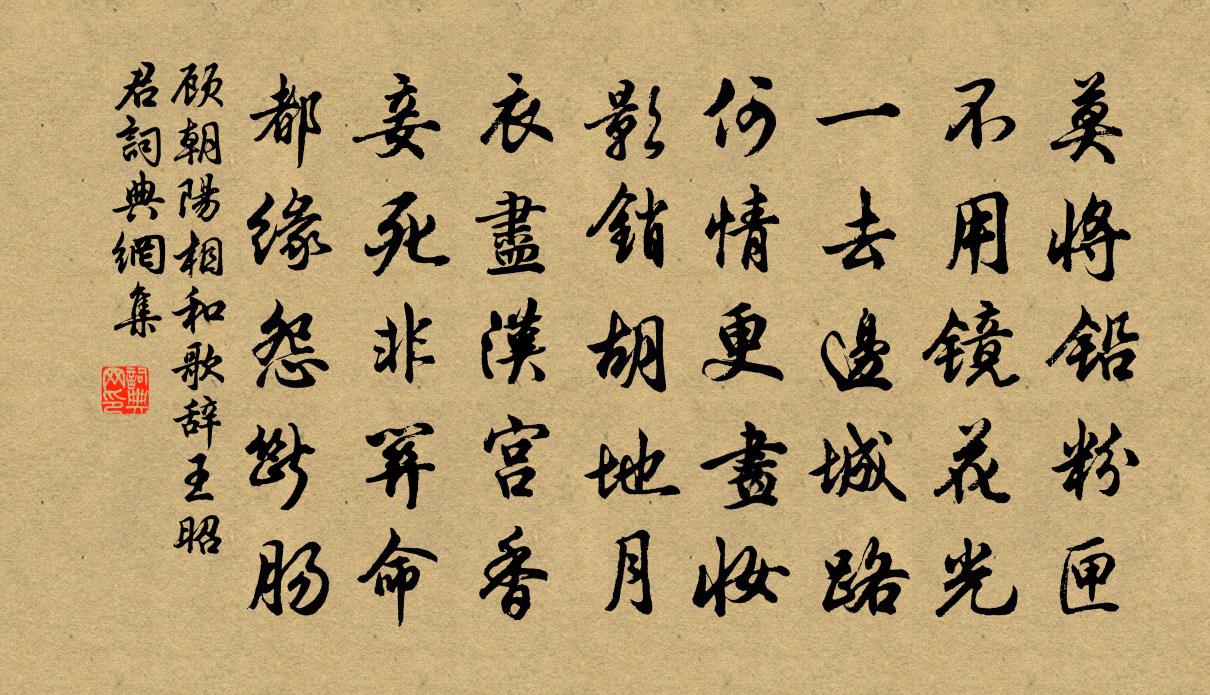 莫將鉛粉匣
不用鏡花光
一去邊城路
何情更畫妝
影銷胡地月
衣盡漢宮香
妾死非關命
都緣怨斷腸
顧朝陽相和歌辞王昭
君詞典網集
詞典网印